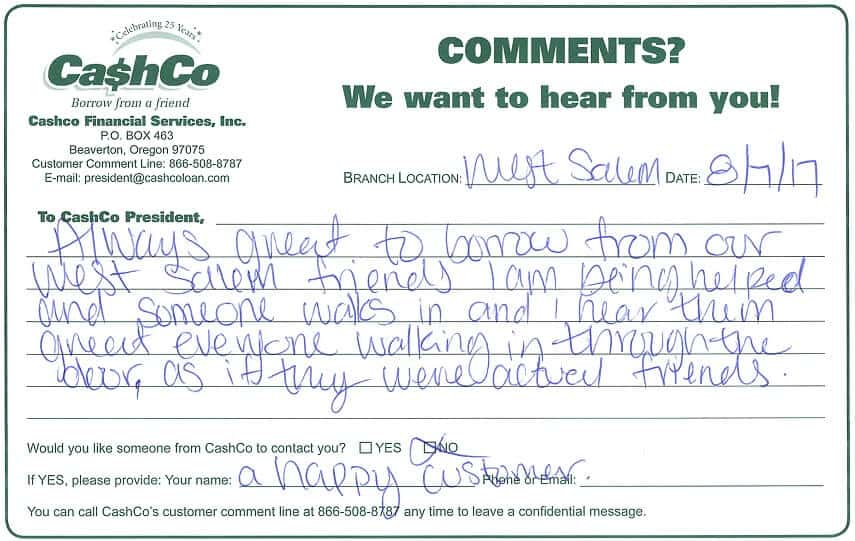 Celebrating 25 Years
Ca$hCo
Borrow from a friend
Cashco Financial Services, Inc.
P.O. BOX 463
Beaverton, Oregon 97075
Customer Comment Line: 866-508-8787
E-mail: president@cashcoloan.com
COMMENTS?
We want to hear from you!
BRANCH LOCATION: West Salem DATE: 8/7/17
To CashCo President,
Always great to borrow from our
West Salem friends I am being helped
and someone walks in and I hear them
greet everyone walking in through the
door, as if they were actual friends.
Would you like someone from CashCo to contact you? YES NO
If YES, please provide: Your name: a happy customer. Phone or Email:
You can call CashCo's customer comment line at 866-508-8787 any time to leave a confidential message.